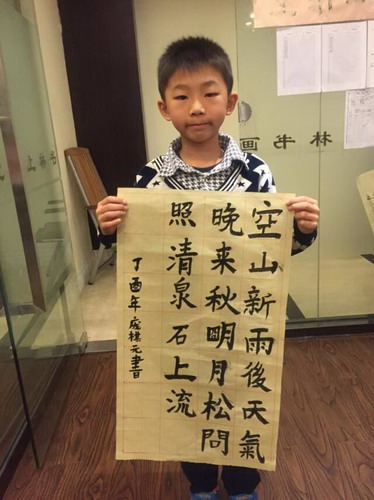 空山新雨後天氣
晚来秋明月松問
照清泉石上流
丁酉年元書
林书画